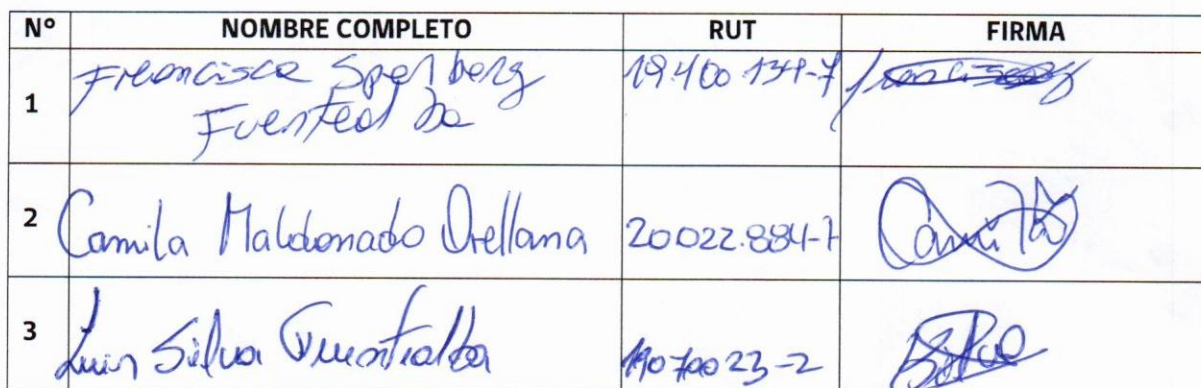 N° NOMBRE COMPLETO RUT FIRMA
1 Francisca Sperberg
Fuentealba
2 Camila Maldonado Orellana 20022.884-7 Camila
3 Luis Silva Fuentealba